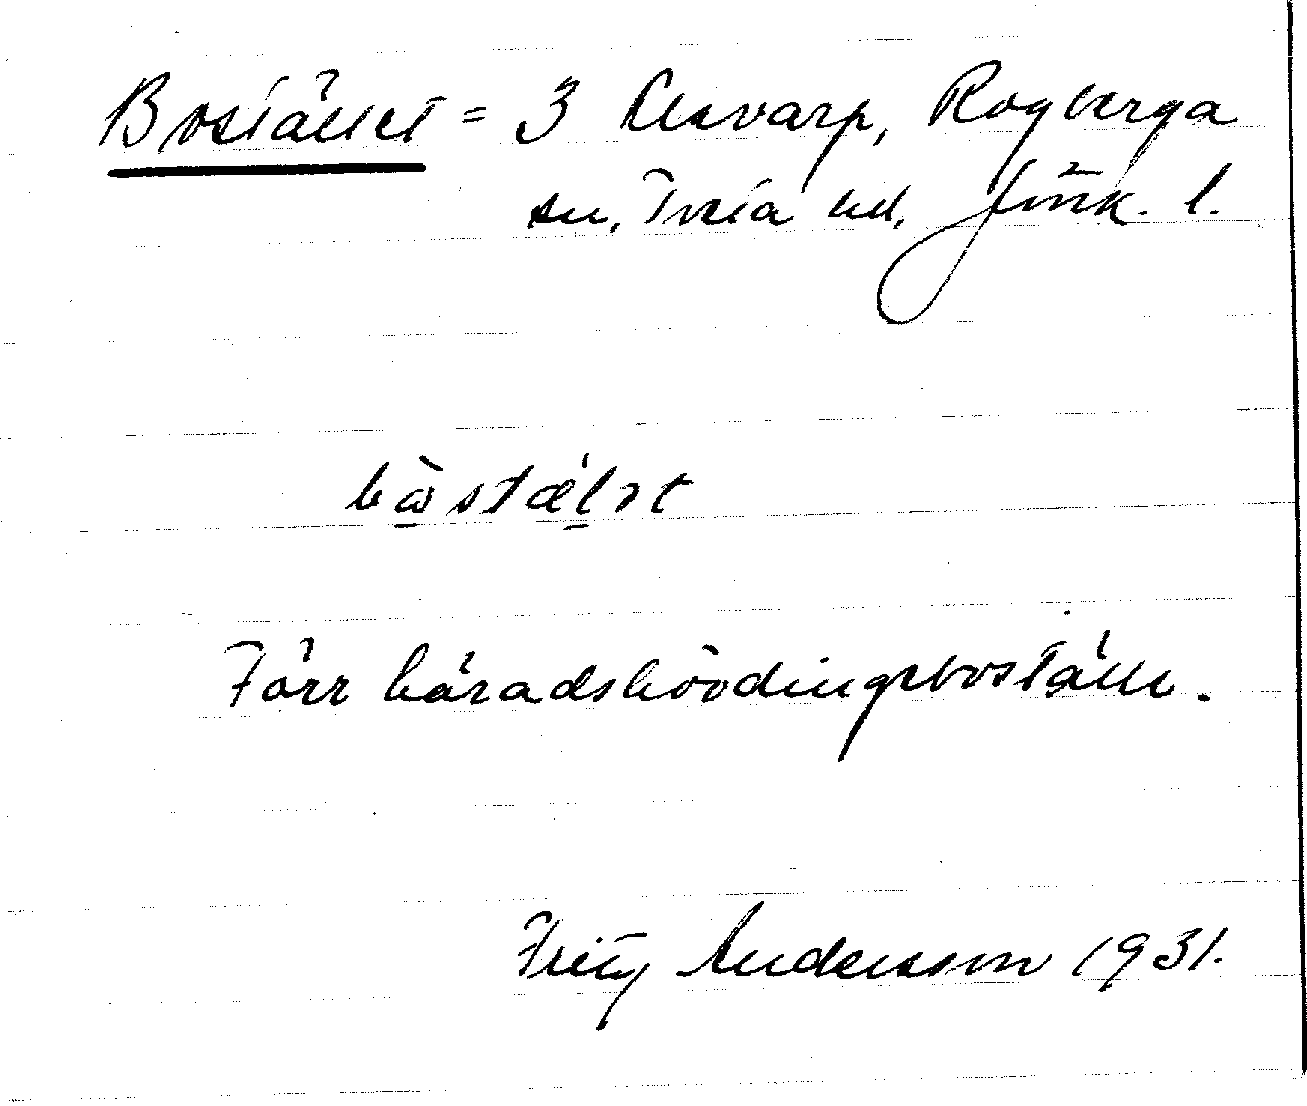 Bostället = 3 Ulvarp, Rogberga
sn, Tveta hd, Jönk. l.
bωstæl̯ət
Förr häradshövdingeboställe.
Fritz Andersson 1931.